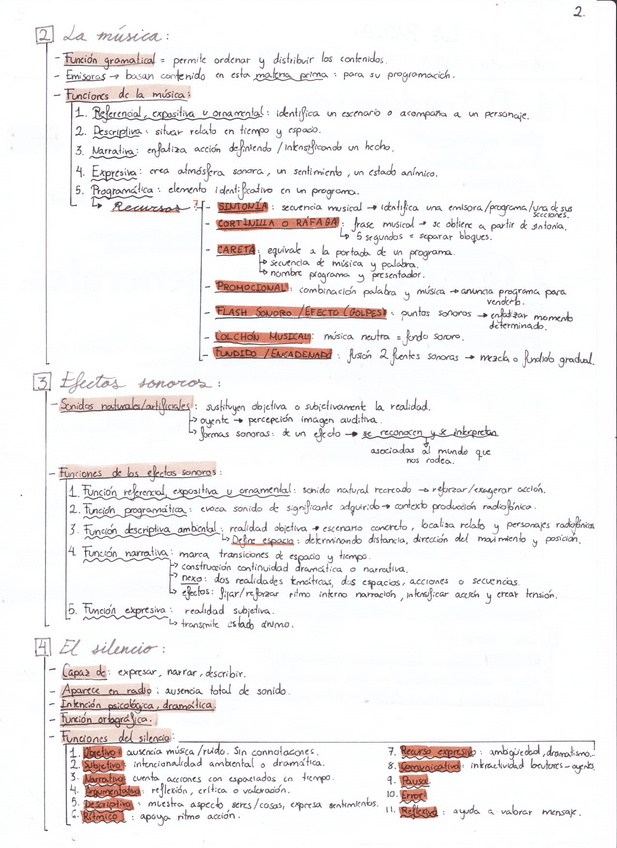 2.
2 La música:
- Función gramatical = permite ordenar y distribuir los contenidos.
- Emisoras → basan contenido en esta materia prima: para su programación.
- Funciones de la música:
1. Referencial, expositiva u ornamental: identifica un escenario o acompaña a un personaje.
2. Descriptiva: situar relato en tiempo y espacio.
3. Narrativa: enfatiza acción definiendo / intensificando un hecho.
4. Expresiva: crea atmósfera sonora, un sentimiento, un estado anímico.
5. Programática: elemento identificativo en un programa.
↳ Recursos ?
- SINTONÍA: secuencia musical → identifica una emisora/programa/una de sus secciones.
- CORTINILLA O RÁFAGA: frase musical → se obtiene a partir de sintonía.
↳ 5 segundos = separar bloques.
- CARETA: equivale a la portada de un programa.
↳ secuencia de música y palabra.
↳ nombre programa y presentador.
- PROMOCIONAL: combinación palabra y música → anuncia programa para venderlo.
- FLASH SONORO/EFECTO (GOLPES): puntos sonoros → enfatizar momento determinado.
- COLCHÓN MUSICAL: música neutra = fondo sonoro.
- FUNDIDO/ENCADENADO: fusión 2 fuentes sonoras → mezcla o fundido gradual.
3 Efectos sonoros:
- Sonidos naturales/artificiales: sustituyen objetiva o subjetivamente la realidad.
↳ oyente → percepción imagen auditiva.
↳ formas sonoras: de un efecto → se reconocen y se interpretan
asociadas al mundo que
nos rodea.
- Funciones de los efectos sonoros:
1. Función referencial, expositiva u ornamental: sonido natural recreado → reforzar/exagerar acción.
2. Función programática: evoca sonido de significante adquirido → contexto producción radiofónica.
3. Función descriptiva ambiental: realidad objetiva → escenario concreto, localiza relato y personajes radiofónicos
↳ Define espacio: determinando distancia, dirección del movimiento y posición.
4. Función narrativa: marca transiciones de espacio y tiempo.
↳ construcción continuidad dramática o narrativa.
↳ nexo: dos realidades temáticas, dos espacios, acciones o secuencias.
↳ efectos: fijar/reforzar ritmo interno narración, intensificar acción y crear tensión.
5. Función expresiva: realidad subjetiva.
↳ transmite estado ánimo.
4 El silencio:
- Capaz de: expresar, narrar, describir.
- Aparece en radio: ausencia total de sonido.
- Intención psicológica, dramática.
- Función ortográfica.
- Funciones del silencio:
1. Objetivo: ausencia música/ruido. Sin connotaciones.
2. Subjetivo: intencionalidad ambiental o dramática.
3. Narrativo: cuenta acciones con espaciados en tiempo.
4. Argumentativa: reflexión, crítica o valoración.
5. Descriptivo: muestra aspecto seres/cosas, expresa sentimientos.
6. Rítmico: apoya ritmo acción.
7. Recurso expresivo: ambigüedad, dramatismo...
8. Comunicativo: interactividad locutores - oyente.
9. Pausa.
10. Error.
11. Reflexivo: ayuda a valorar mensaje.